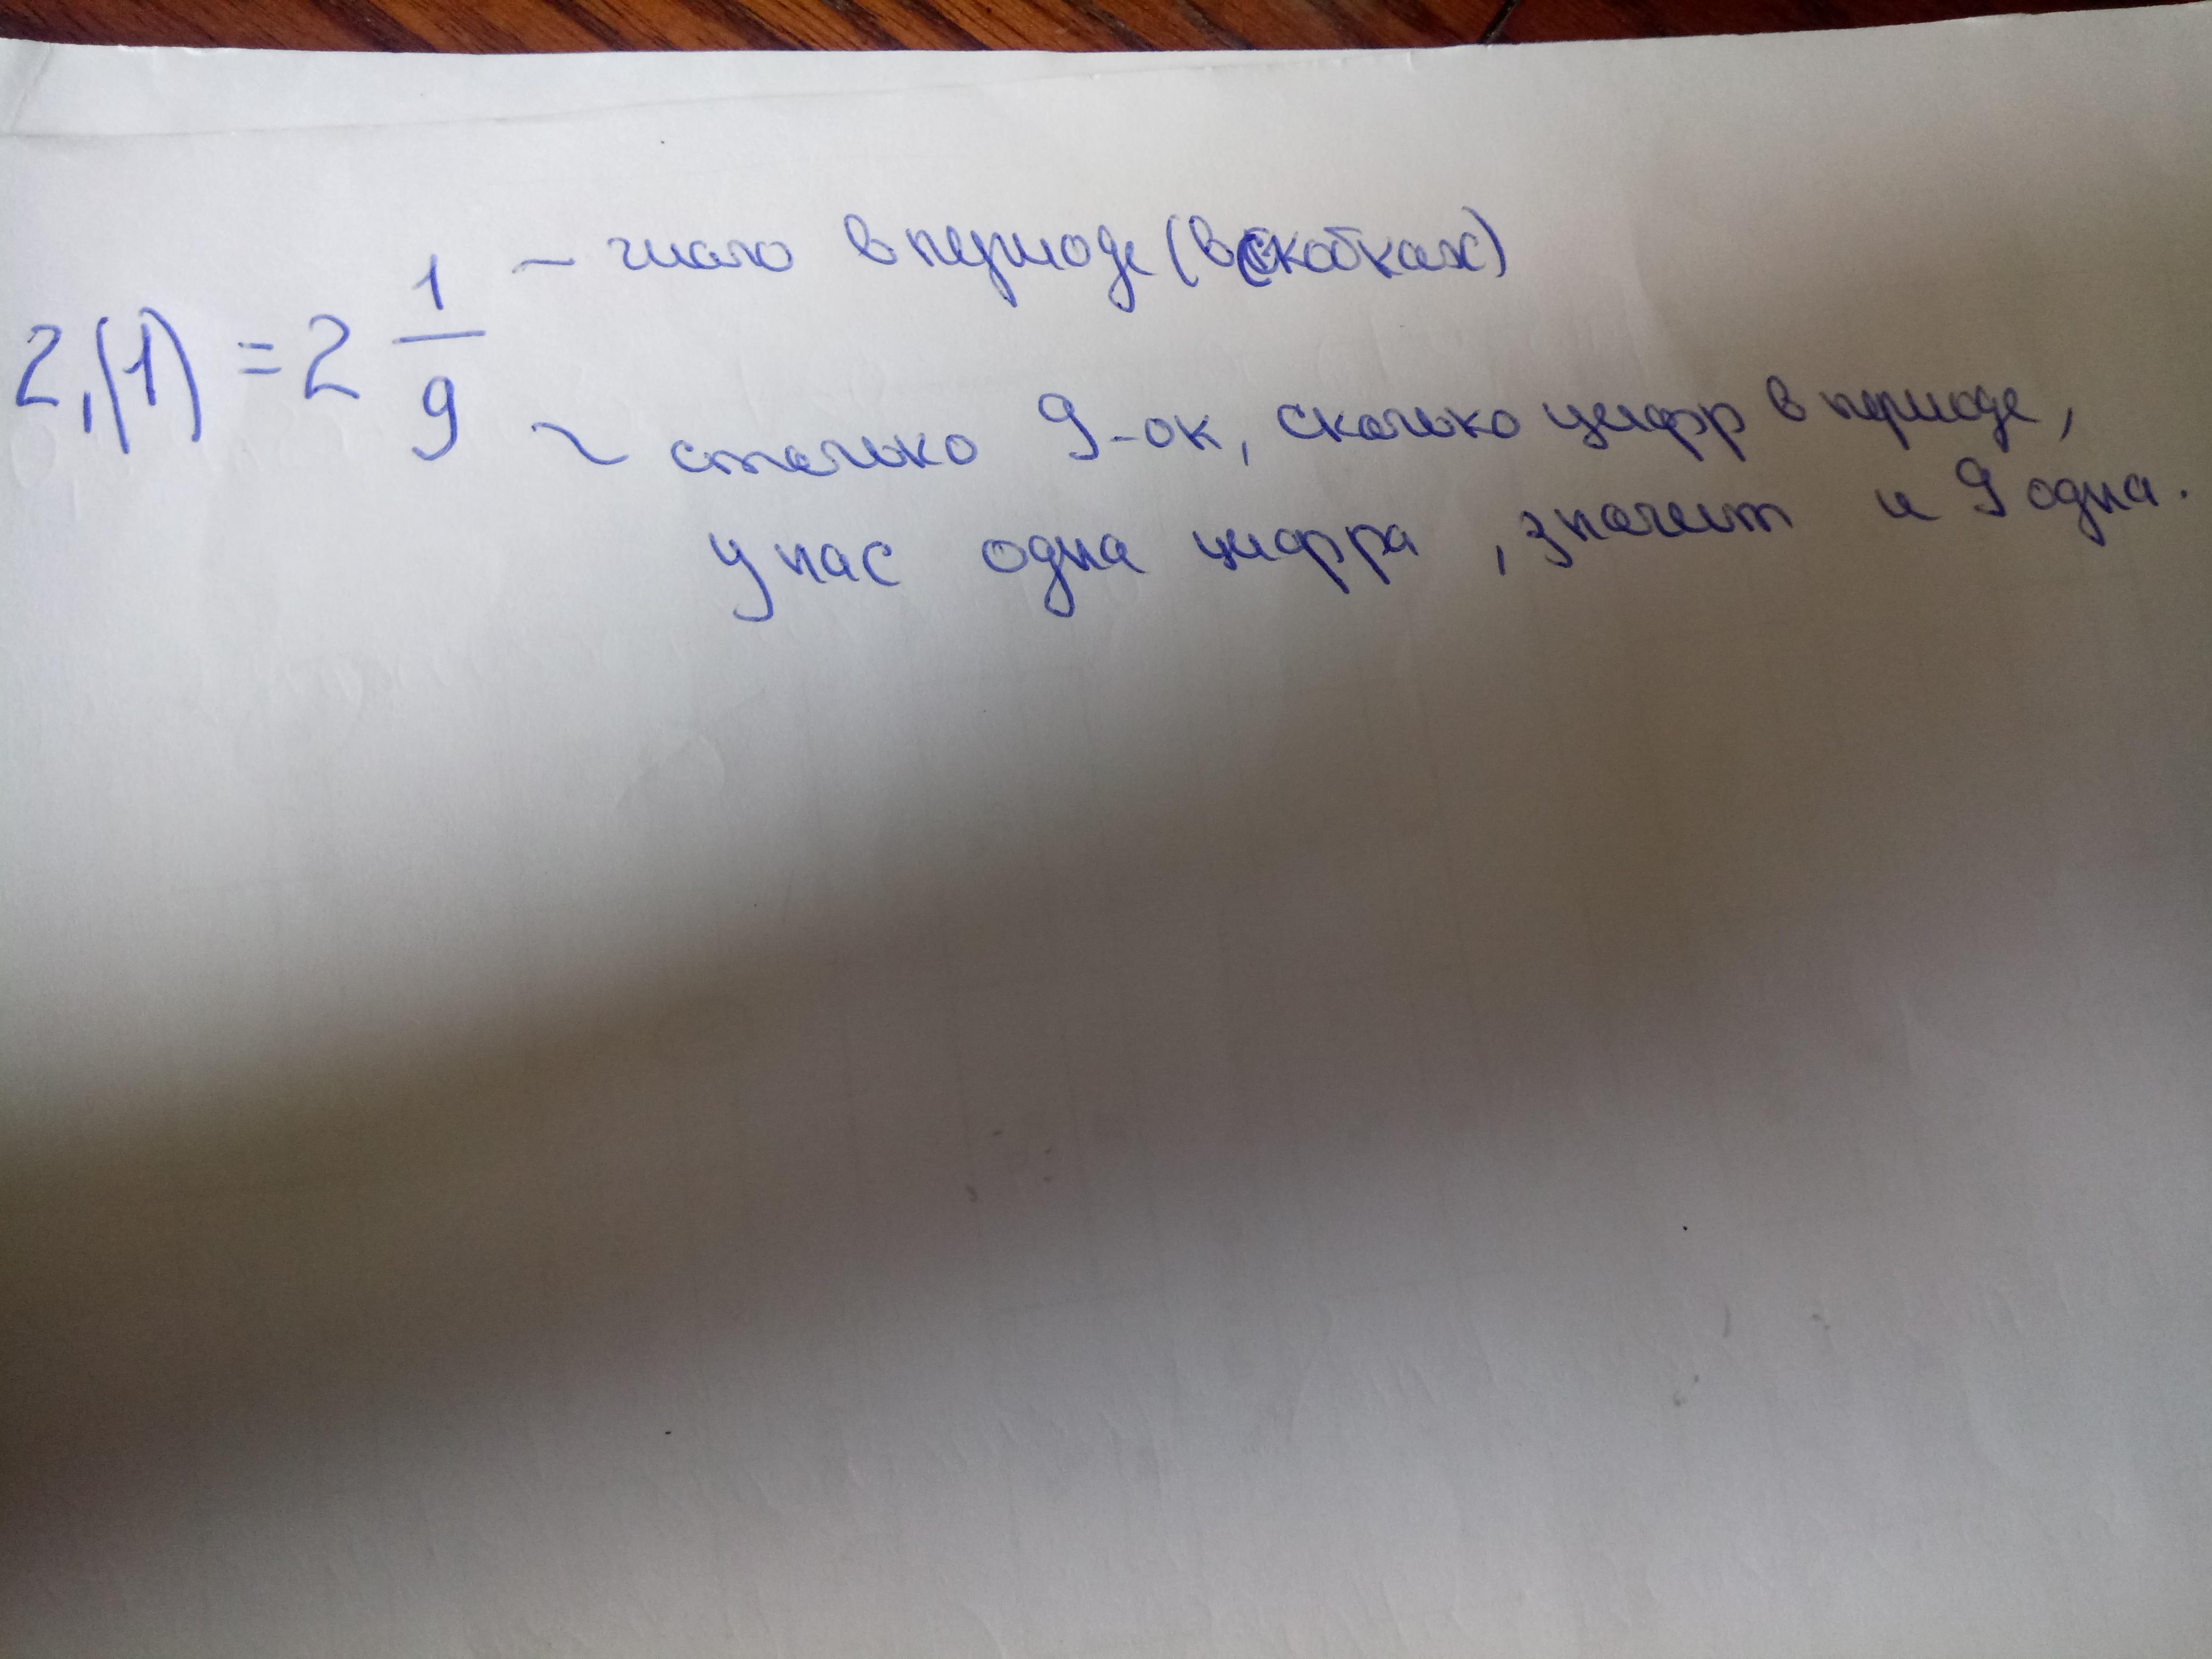 1 – число в периоде (в скобках)
2,(1) = 2 —
9 ~ столько 9-ок, сколько цифр в периоде,
у нас одна цифра, значит и 9 одна.